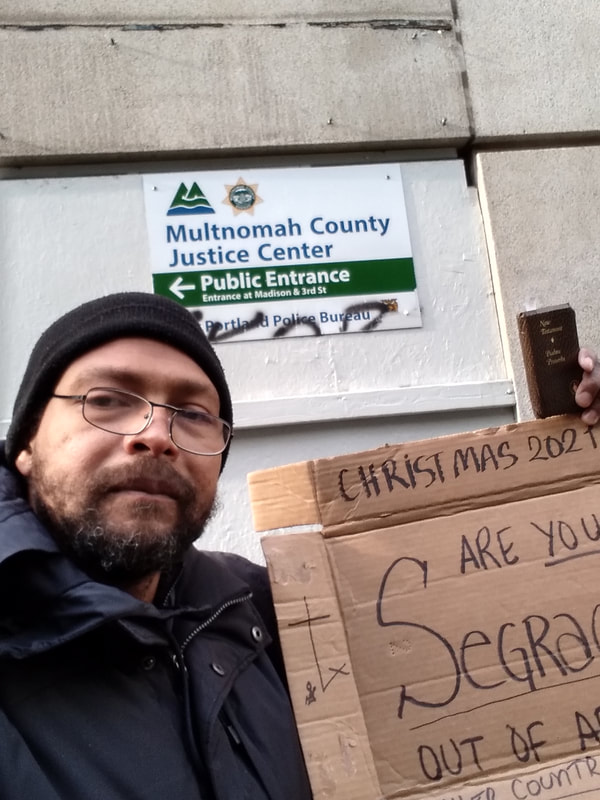 Multnomah County
Justice Center
Public Entrance
Entrance at Madison & 3rd St
Portland Police Bureau
New
Testament
Psalms
Proverbs
CHRISTMAS 2021
ARE YOU
SEGRAG
OUT OF A
COUNTR